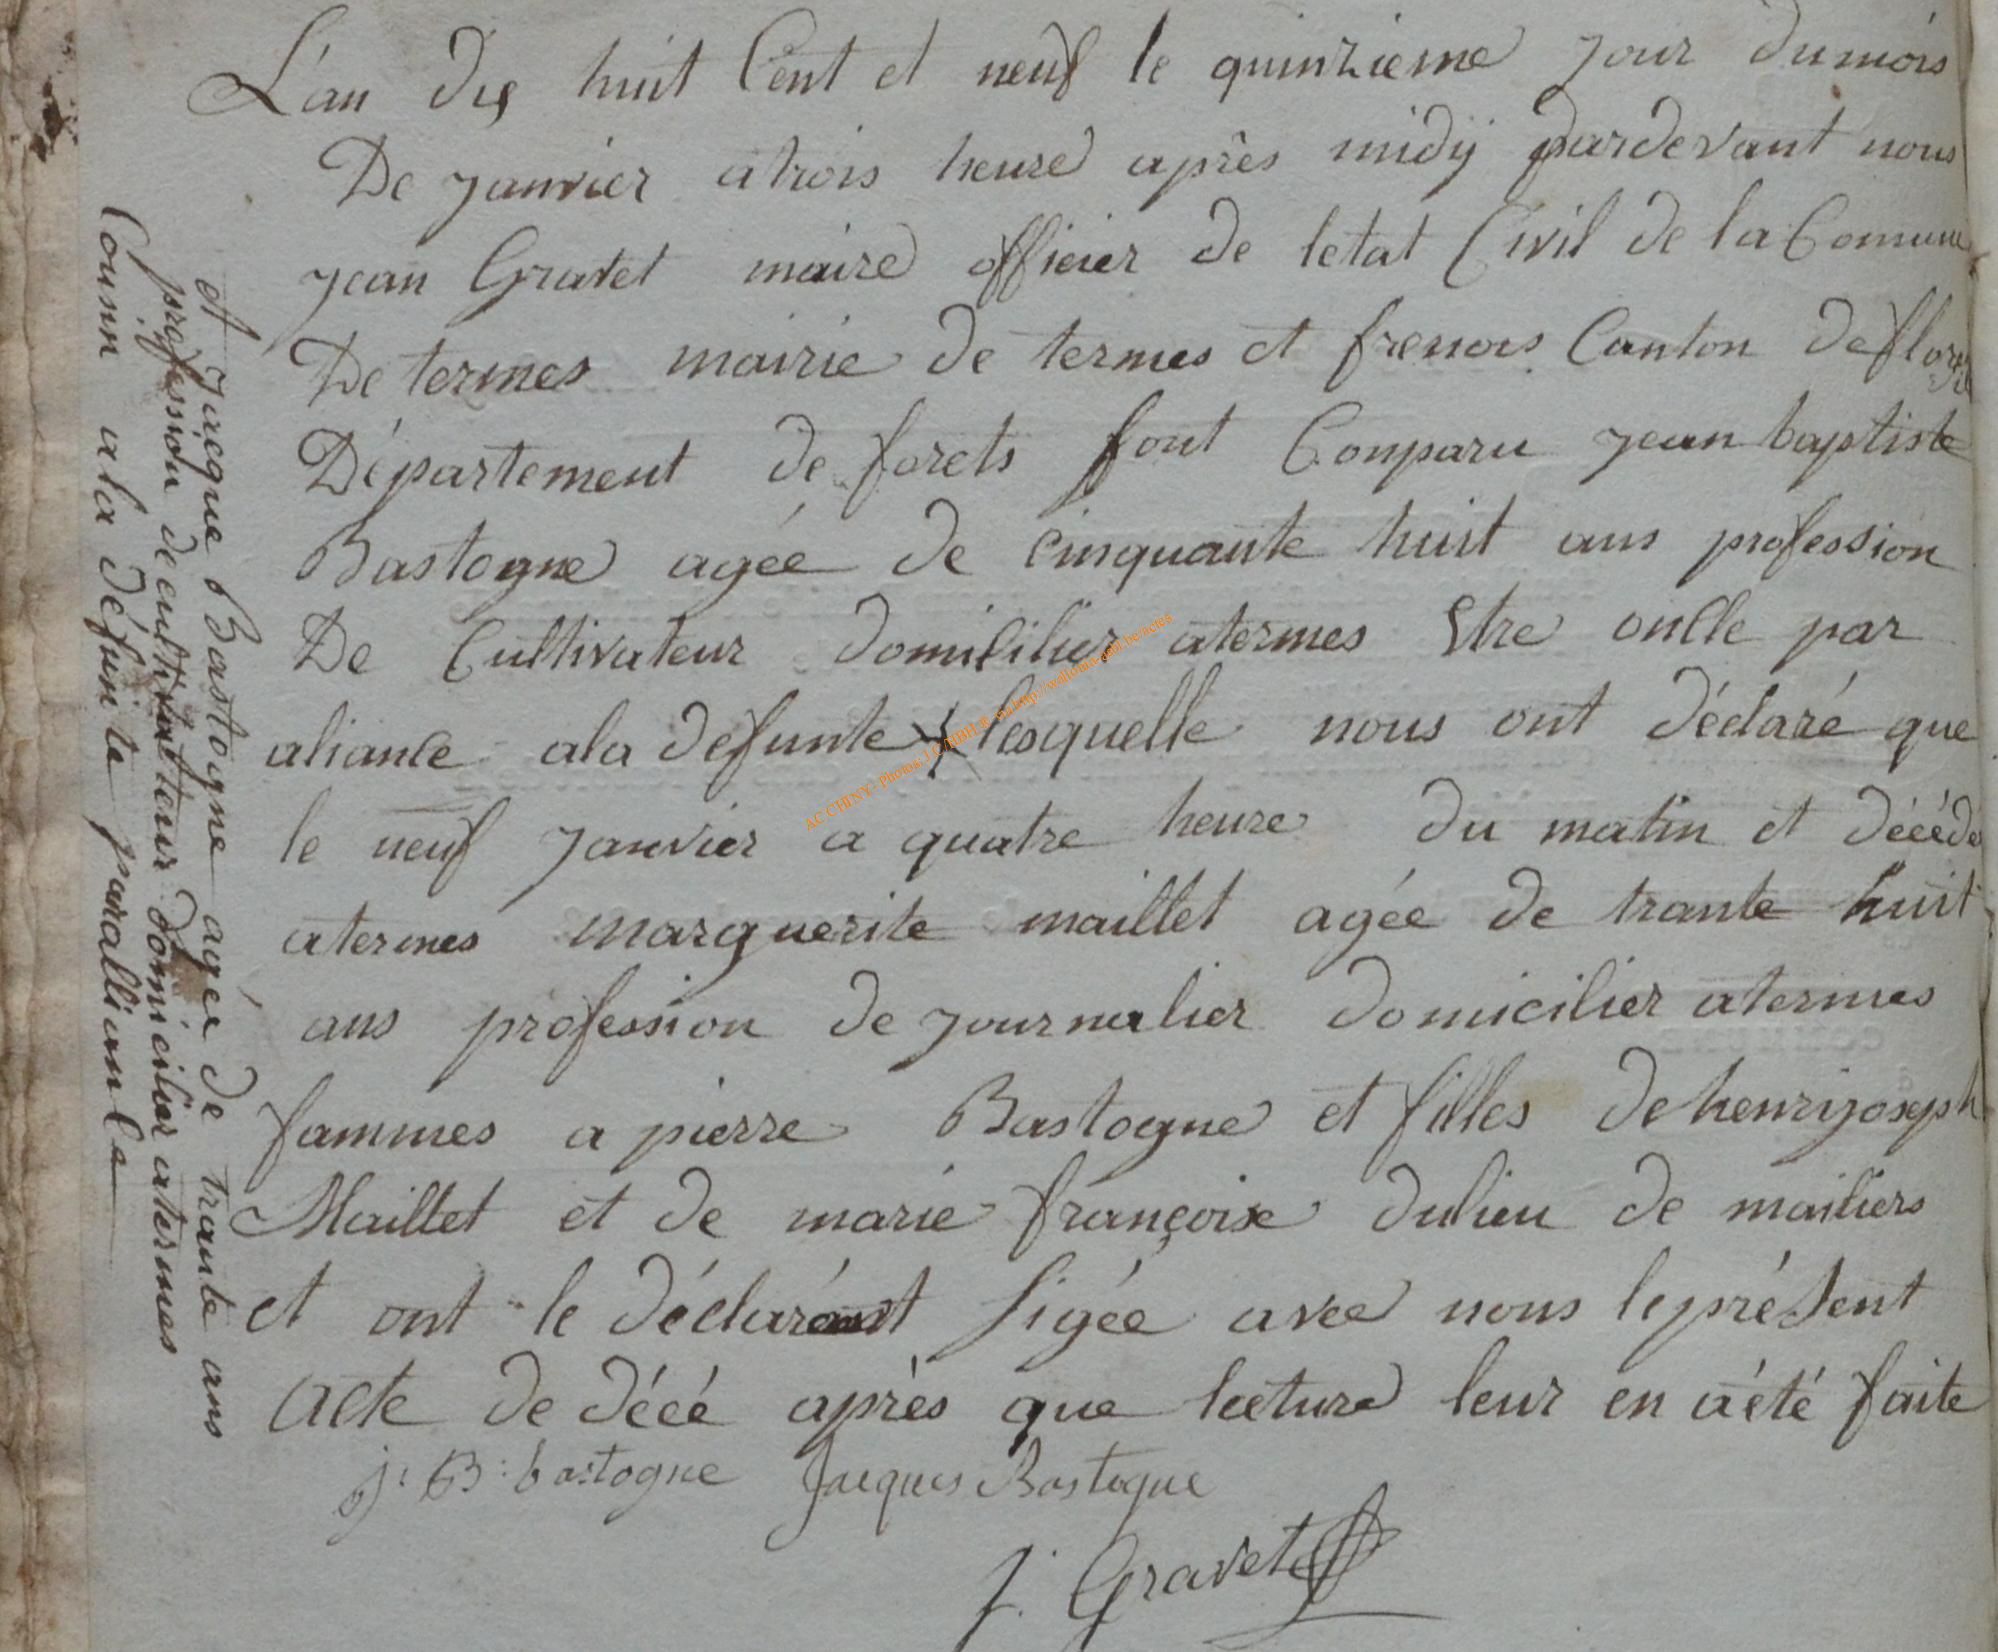 L'an dix huit Cent et neuf le quinzieme jour du mois
De janvier a trois heure après midÿ pardevant nous
jean Gravet maire officier de letat Civil de la Comune
De termes mairie de termes et frenois Canton de florenville
Département de forets sont Conparu jean baptiste
Bastogne agée de cinquante huit ans profession
De Cultivateur domicilier atermes Etre oncle par
aliance ala defunte lesquelle nous ont déclaré que
le neuf janvier a quatre heure du matin et décédé
atermes marguerite maillet agée de trante huit
ans profession de journalier domicilier atermes
fammes a pierre Bastogne et filles de henrijoseph
Maillet et de marie françoise dulieu de mailiers
et ont le déclarant sigée avec nous leprésent
acte de décé après que lecture leur en a été faite
j: B: bastogne Jacques Bastogne
J. Gravet
et jacque Bastogne agée de trante ans
profession de cultivateur domicilier atermes
Cousin a la défunte paralliance
AC CHINY - Photos: J.C. http://wallonia.asbl.be/actes